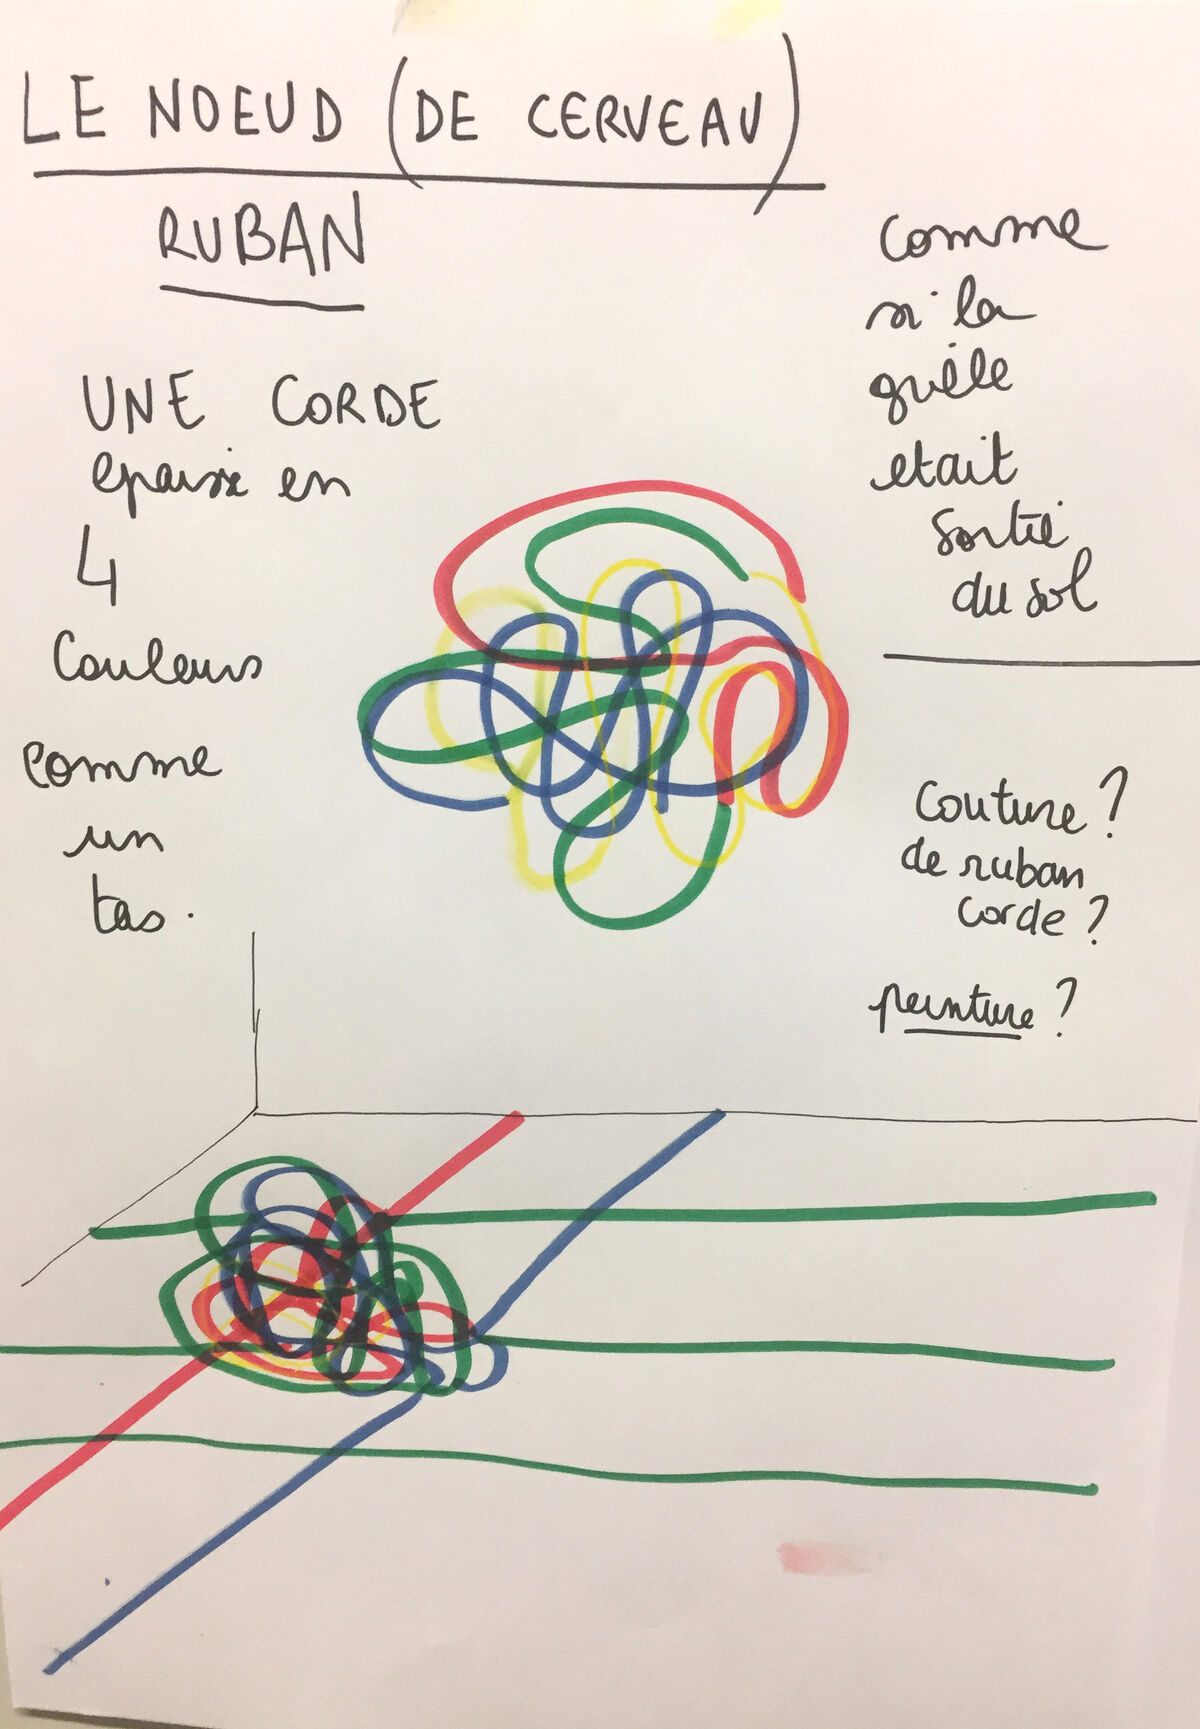 LE NOEUD (DE CERVEAU)
RUBAN
UNE CORDE
epaisse en
4
Couleurs
comme
un
tas.
comme
si la
grille
etait
sortie
du sol
couture ?
de ruban
corde ?
peinture ?